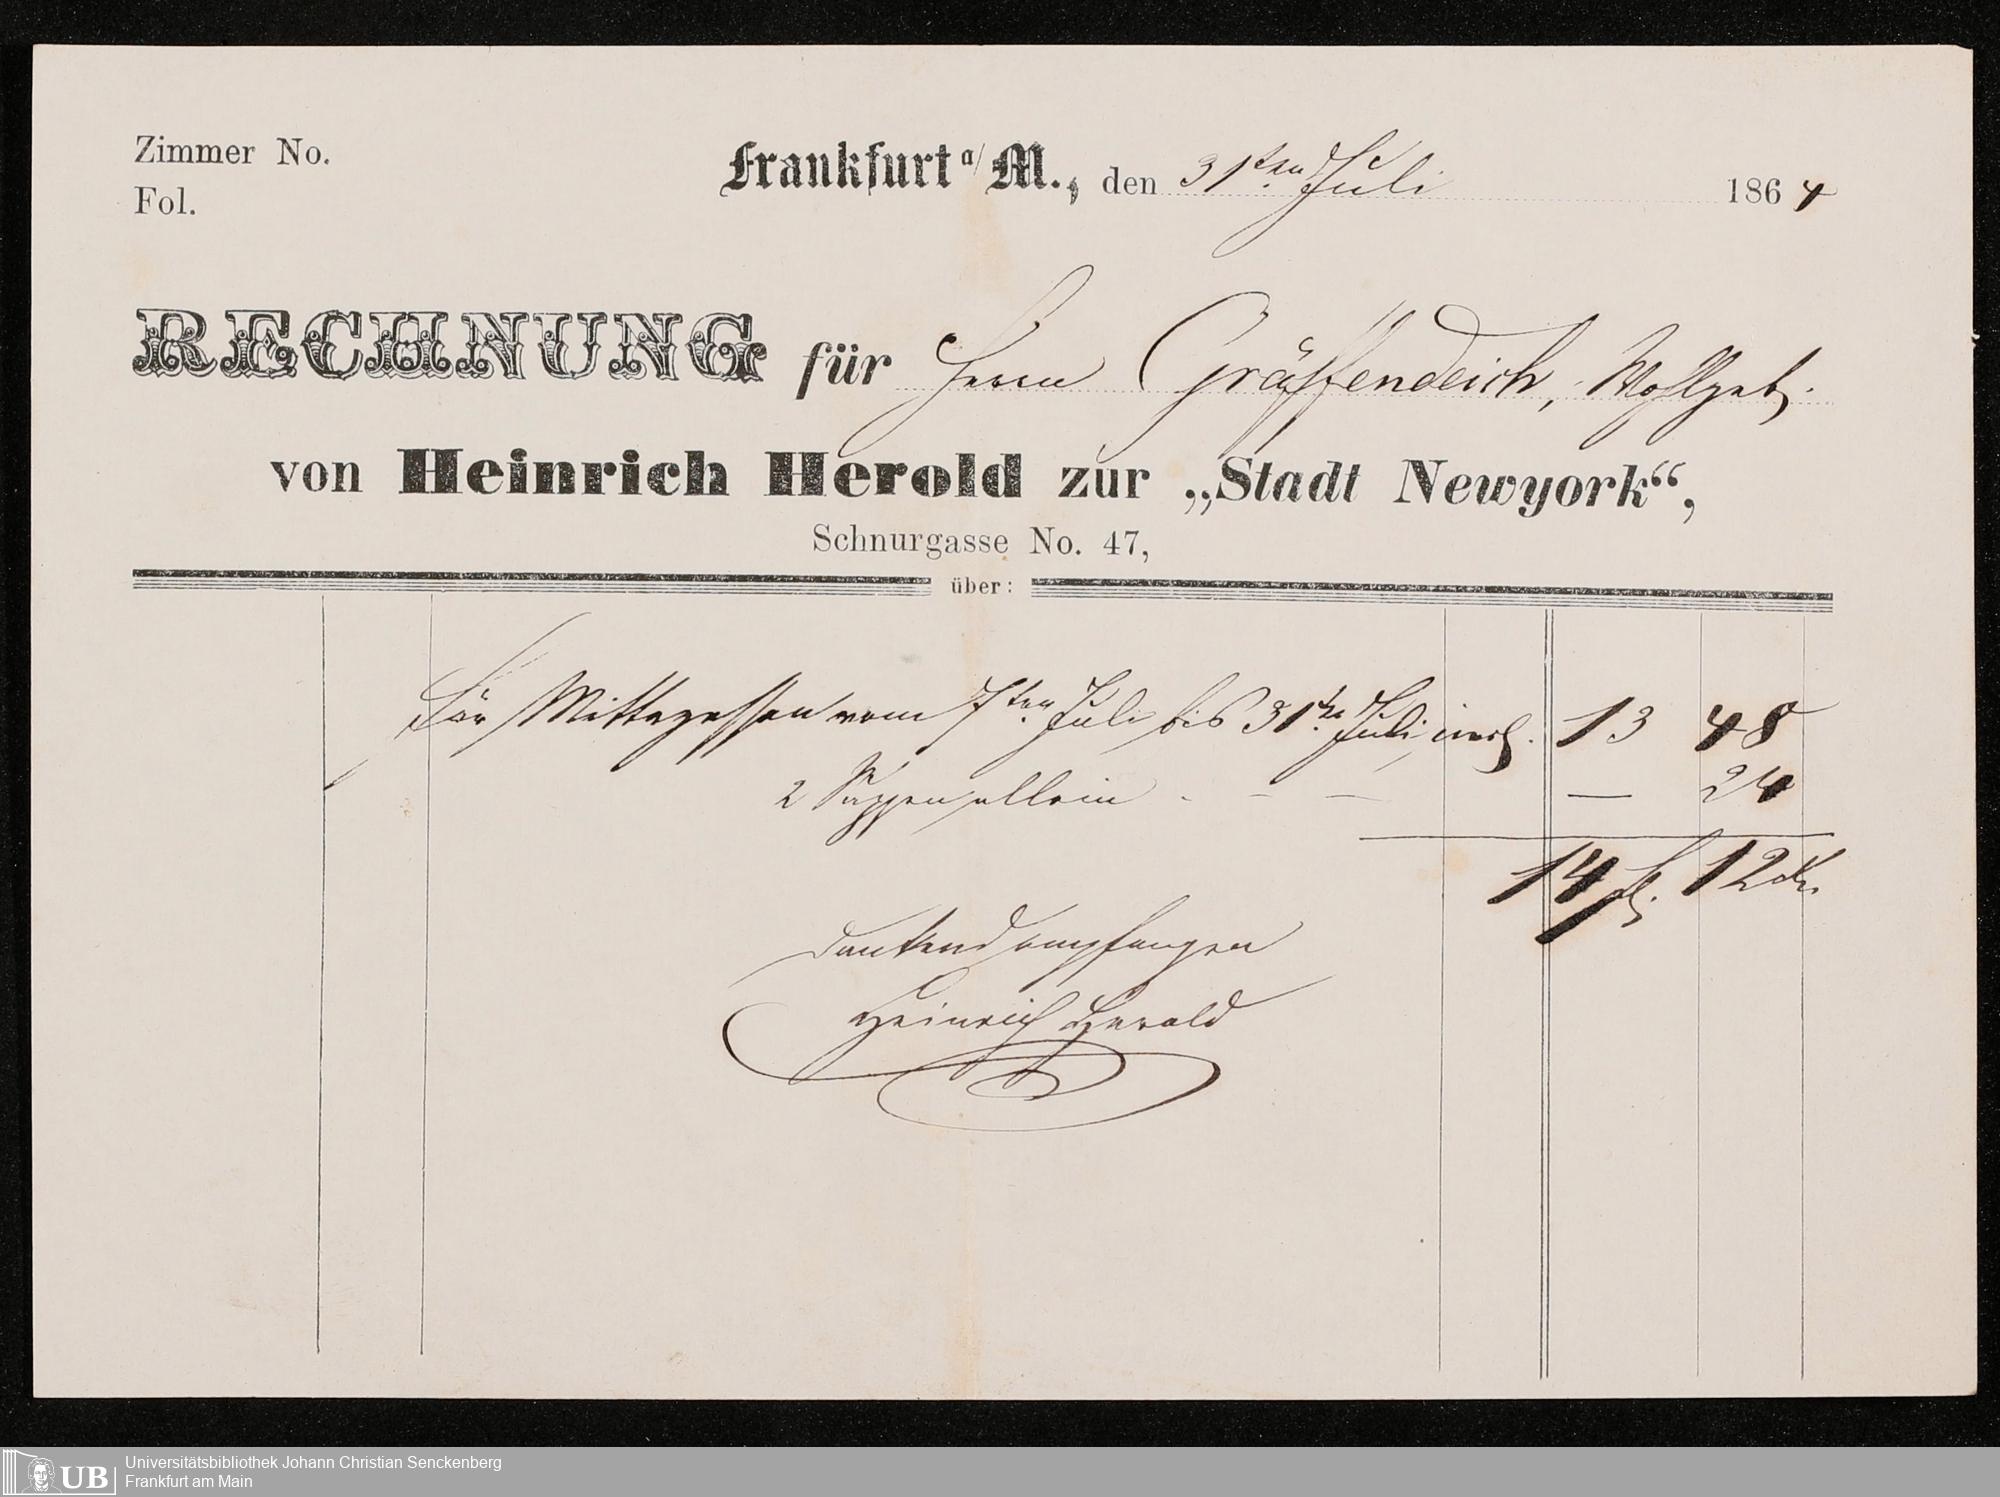 Zimmer No.
Fol.
Frankfurt a/M., den 31ten Juli 1864
RECHNUNG für Herrn Gräffendeich, Wohlgeb.
von Heinrich Herold zur „Stadt Newyork“,
Schnurgasse No. 47,
über:
Für Mittagessen vom 7ten Juli bis 31ten Juli, incl. 13 48
2 Suppen allein - - - — 24
14 fl. 12 Kr
dankend empfangen
Heinrich Herold
UB Universitätsbibliothek Johann Christian Senckenberg
Frankfurt am Main